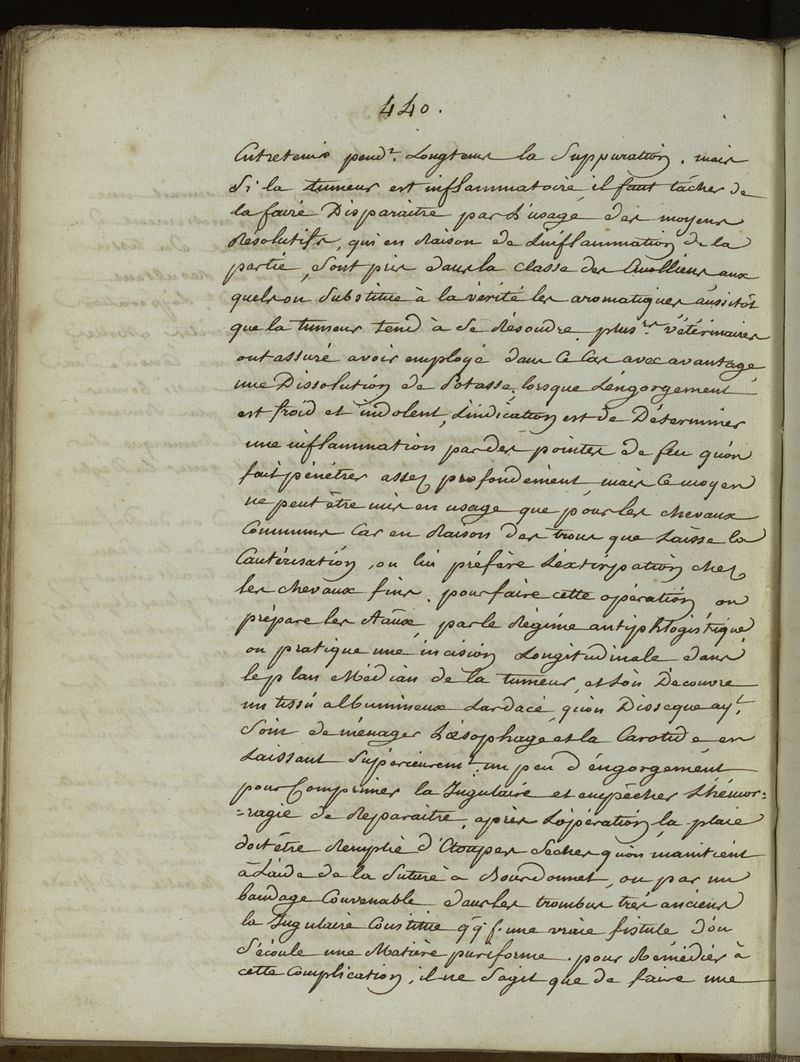 440.
Entretenir pendt. Longtems la Suppuration. mais
Si la tumeur est inflammatoire, il faut tâcher de
la faire Disparaitre par L'usage des moyens
Résolutifs, qui en Raison de L'inflammation de la
partie, sont pris dans la classe des Emolliens aux
quels on Substitue à la vérité les aromatiques aussitôt
que la tumeur tend à se Résoudre. plusrs. vétérinaires
ont assuré avoir employé dans ce Cas avec avantage
une Dissolution de Potasse, lorsque L'éngorgement
est froid et indolent, L'indication est de Déterminer
une inflammation par des pointes de feu qu'on
fait pénétrer assez profondement, mais ce moyen
ne peut être mis en usage que pour les chevaux
Communs Car en Raison des trous que Laisse la
Cautérisation, on lui préfère L'extirpation chez
les chevaux fins. pour faire cette opération on
prépare les Aaux, par le Régime antiphlogistique
on pratique une incision Longitudinale dans
le plan Médian de la tumeur, et L'on Découvre
un tissu albumineux Lardacé, qu'on Disseque ayt.
Soin de ménager L'œsophage et la Carotide en
Laissant Supérieuremt. un peu d'éngorgement
pour Comprimer la Jugulaire et empêcher L'hémor=
=ragie de Reparaitre, après L'opération, la plaie
doit être Remplie d'Etoupes Seches qu'on maintient
à L'aide de la Suture à Bourdonnet, ou par un
bandage Convenable dans les trombus très anciens
la Jugulaire Constitue qqf. une vraie fistule d'où
S'écoule une Matière puriforme. pour Remédier à
cette Complication, il ne S'agit que de faire une